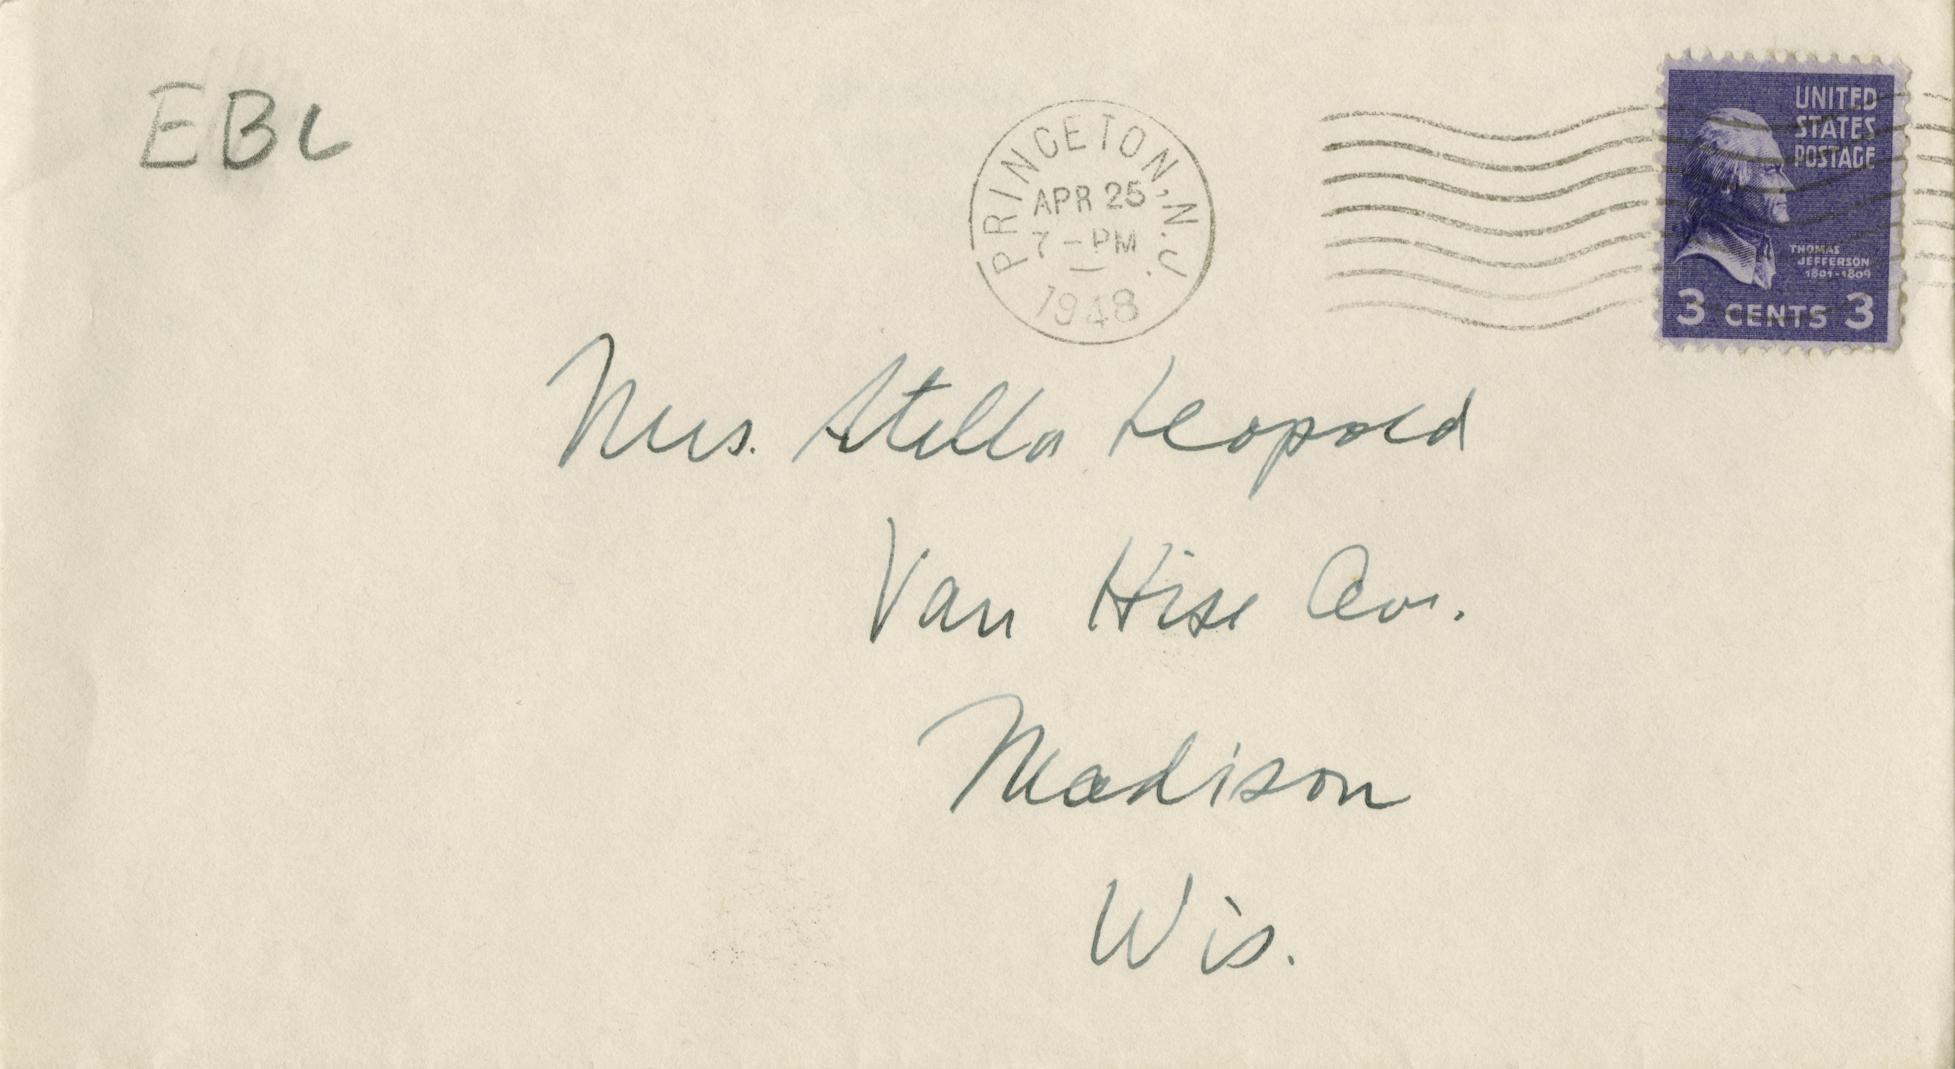 EBL
PRINCETON, N.J.
APR 25
7 - PM
1948
UNITED
STATES
POSTAGE
THOMAS
JEFFERSON
1801-1809
3 CENTS 3
Mrs. Stella Leopold
Van Hise Av.
Madison
Wis.